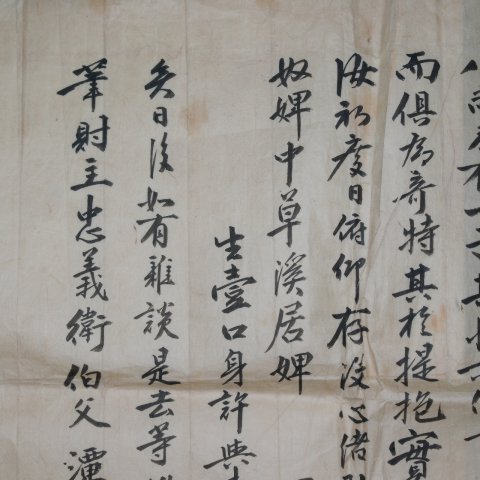 而俱爲奇特其於提抱實
汝初度日俯仰存沒心緒
奴婢中草溪居婢
生壹口身許與
矣日後如有雜談是去等
筆財主忠義衛伯父